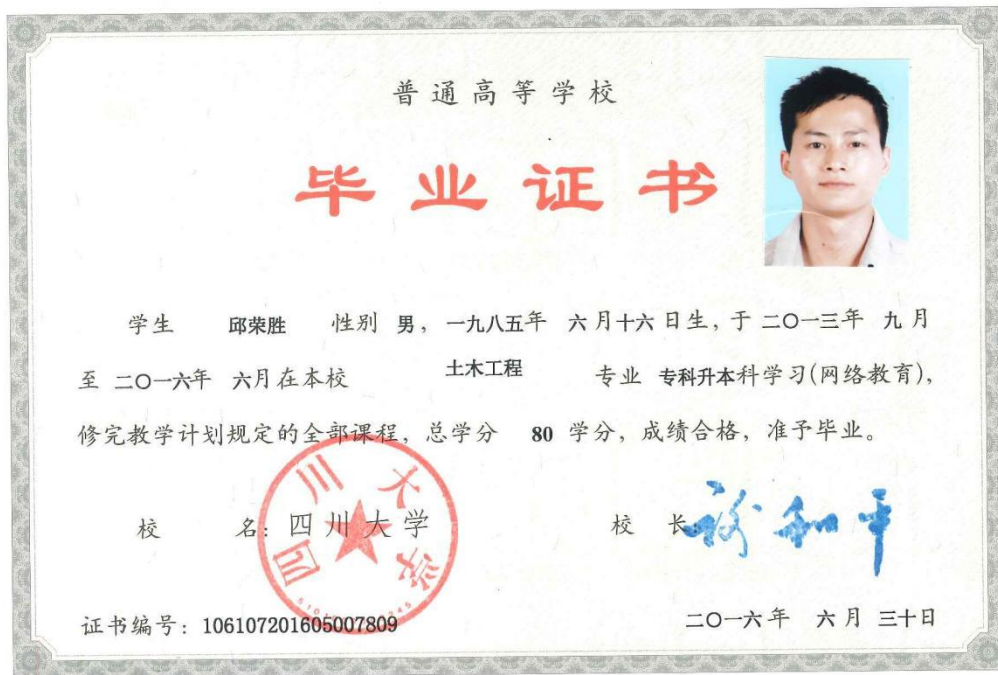 普通高等学校
毕业证书
学生 邱荣胜 性别 男，一九八五年 六月十六日生，于二〇一三年 九月
至二〇一六年 六月在本校 土木工程 专业 专科升本科学习(网络教育)，
修完教学计划规定的全部课程，总学分 80 学分，成绩合格，准予毕业。
校 名：四川大学 校 长：谢和平
四川大学
证书编号：106107201605007809 二〇一六年 六月 三十日